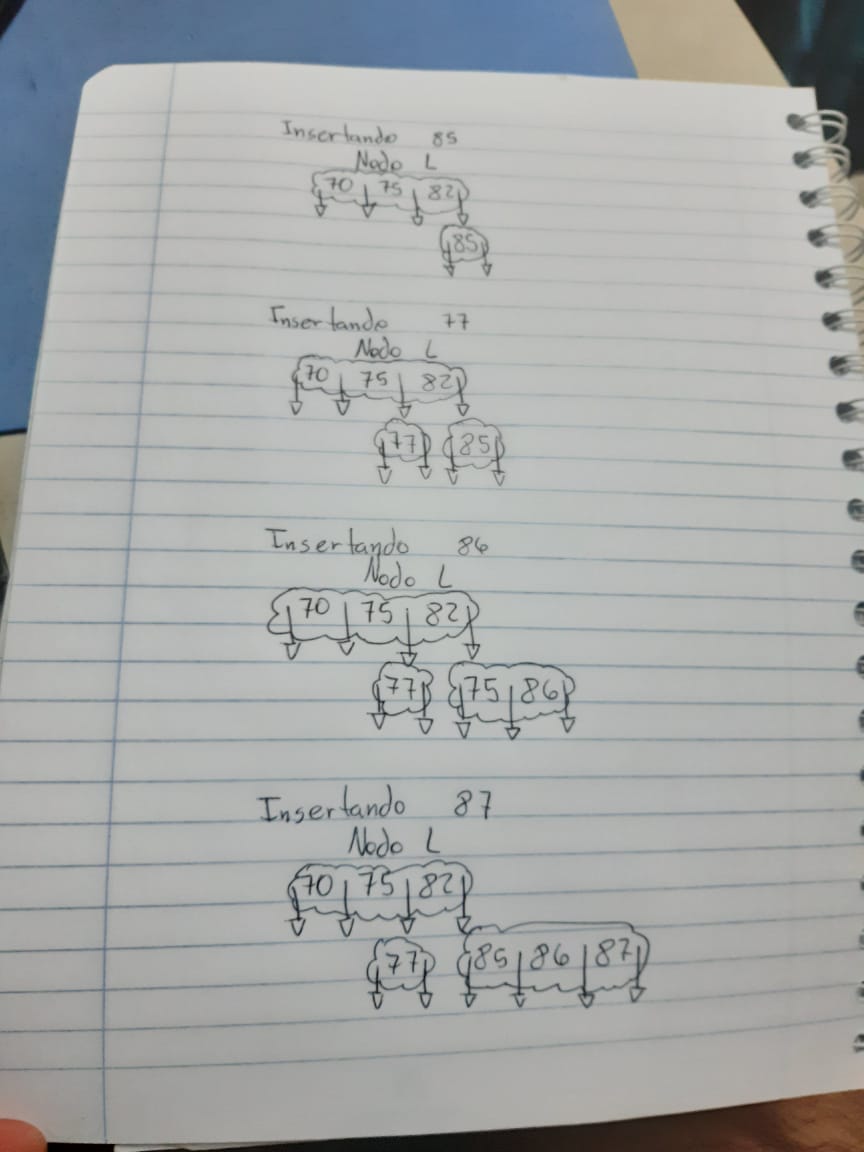 Insertando 85
Nodo L
70 75 82
85
Insertando 77
Nodo L
70 75 82
77 85
Insertando 86
Nodo L
70 75 82
77 75 86
Insertando 87
Nodo L
70 75 82
77 85 86 87